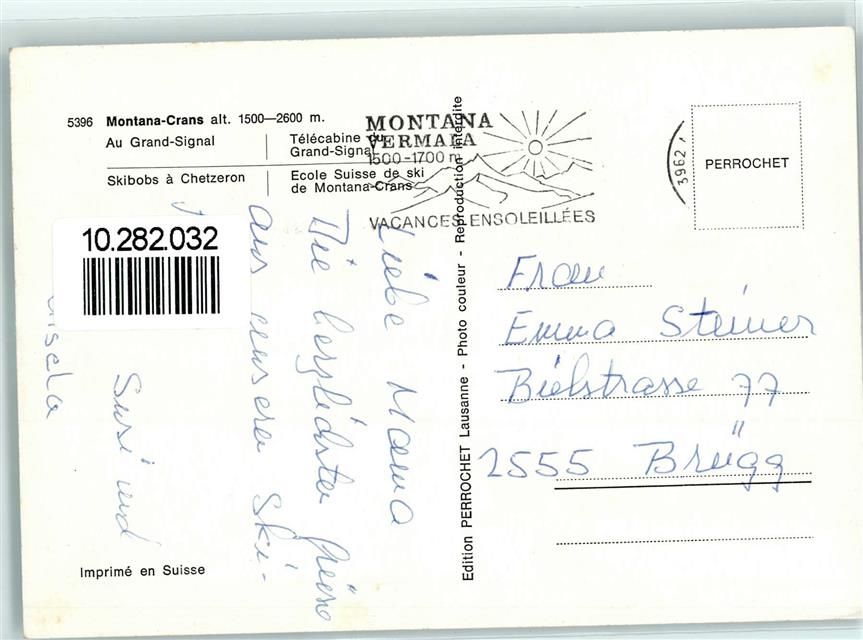 5396 Montana-Crans alt. 1500—2600 m.
Au Grand-Signal
Télécabine du
Grand-Signal
Skibobs à Chetzeron
Ecole Suisse de ski
de Montana-Crans
MONTANA
VERMALA
1500-1700 m
VACANCES ENSOLEILLÉES
3962
PERROCHET
10.282.032
Liebe Mama
Die herzlichsten Grüsse
aus unserer Ski-
Susi und
Gisela
Edition PERROCHET Lausanne - Photo couleur - Reproduction interdite
Frau
Emma Steiner
Bielstrasse 77
2555 Brügg
Imprimé en Suisse